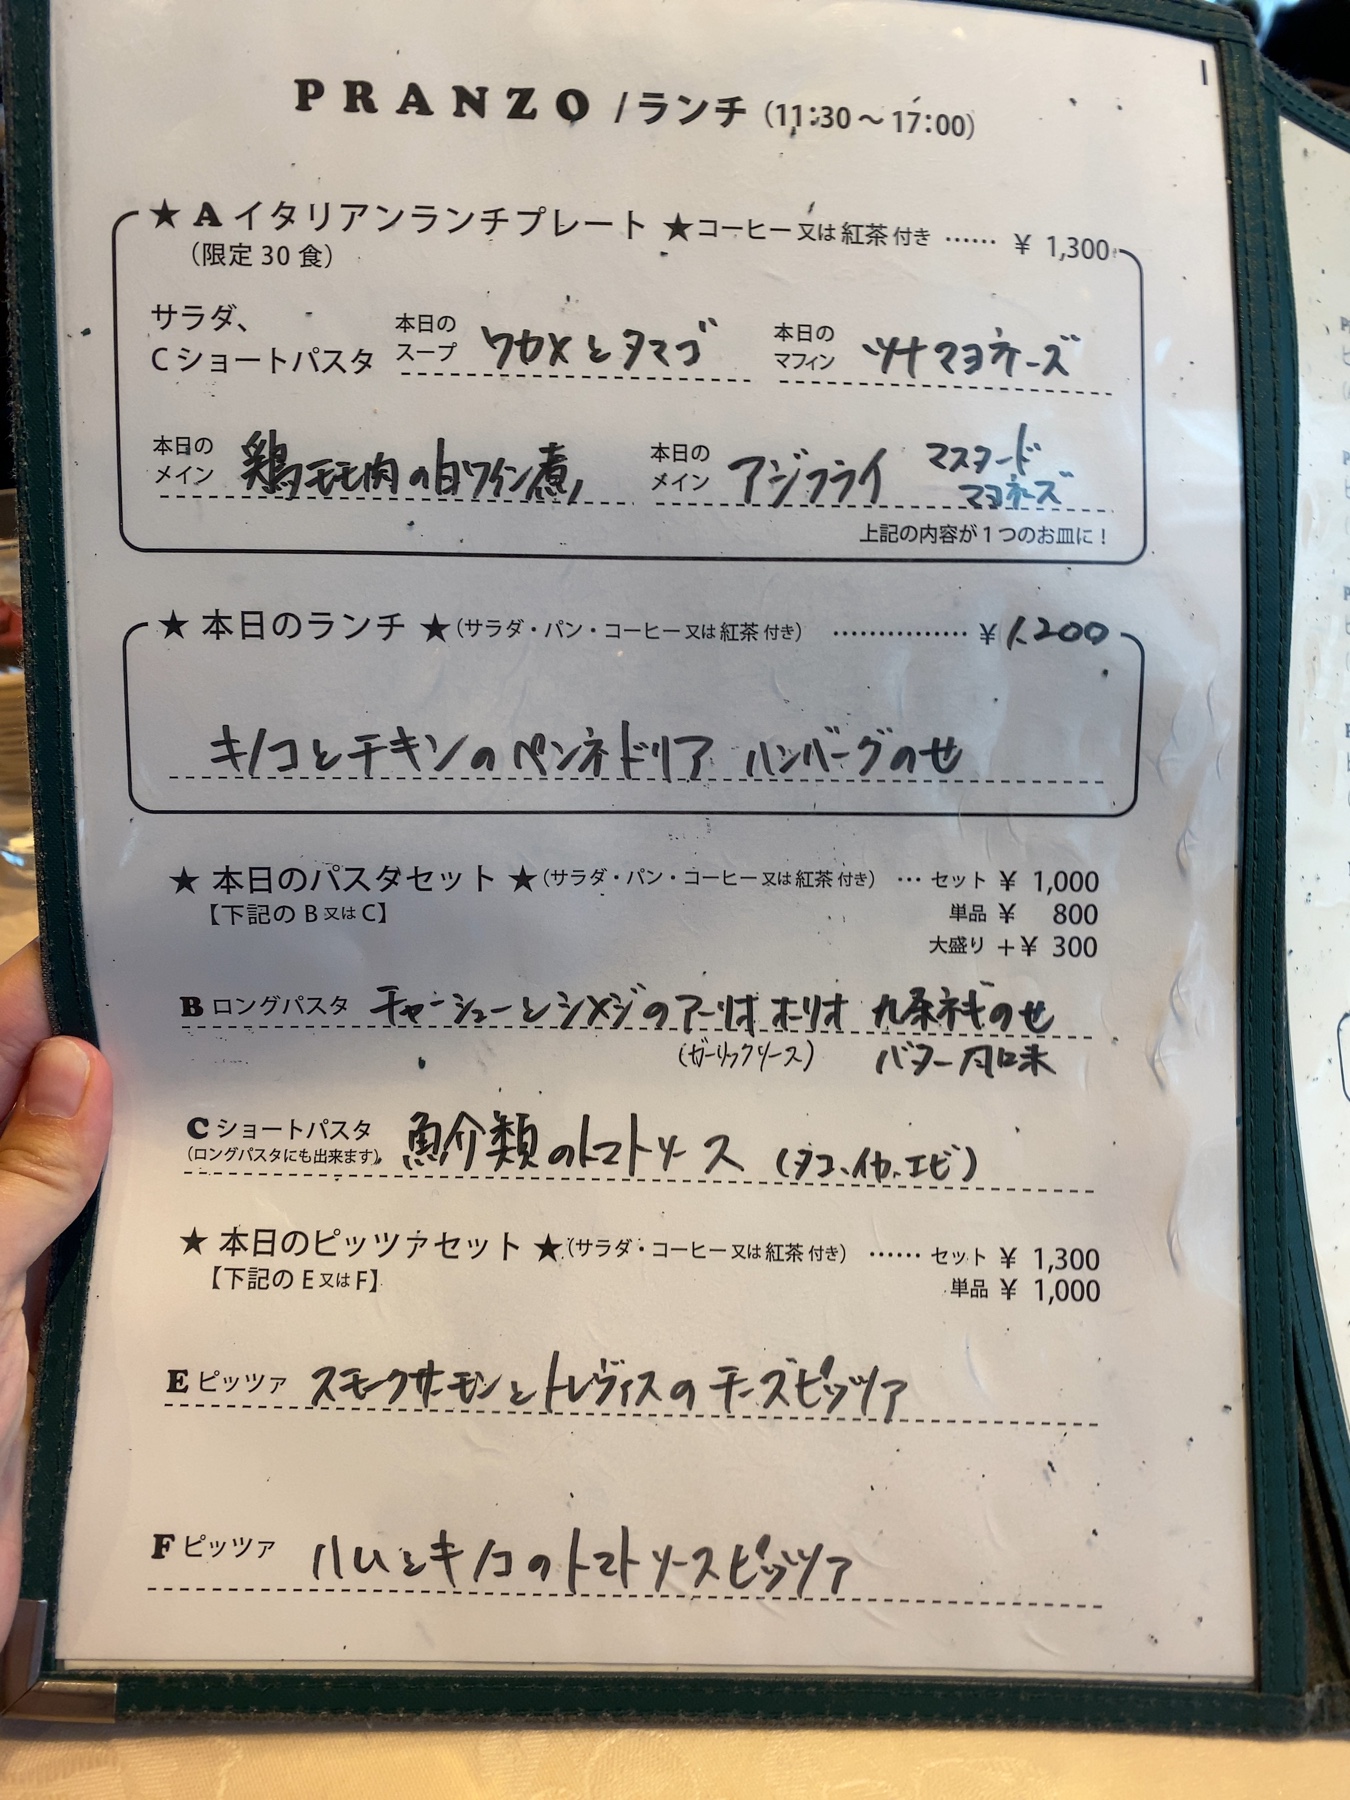 PRANZO / ランチ (11:30～17:00)
★ A イタリアンランチプレート ★コーヒー又は紅茶付き …… ¥ 1,300
(限定 30 食)
サラダ、
C ショートパスタ
本日の
スープ ワカメとタマゴ
本日の
マフィン ツナマヨネーズ
本日の
メイン 鶏モモ肉の白ワイン煮
本日の
メイン アジフライ マスタード
マヨネーズ
上記の内容が1つのお皿に！
★ 本日のランチ ★(サラダ・パン・コーヒー又は紅茶付き) …………… ¥ 1,200
キノコとチキンのペンネドリア ハンバーグのせ
★ 本日のパスタセット ★(サラダ・パン・コーヒー又は紅茶付き) … セット ¥ 1,000
【下記の B 又は C】 単品 ¥ 800
大盛り +¥ 300
B ロングパスタ チャーシューとシメジのアーリオ オーリオ 九条ネギのせ
(ガーリックソース) バター風味
C ショートパスタ 魚介類のトマトソース (タコ、イカ、エビ)
(ロングパスタにも出来ます)
★ 本日のピッツァセット ★(サラダ・コーヒー又は紅茶付き) …… セット ¥ 1,300
【下記の E 又は F】 単品 ¥ 1,000
E ピッツァ スモークサーモンとトレヴィスのチーズピッツァ
F ピッツァ ハムとキノコのトマトソースピッツァ